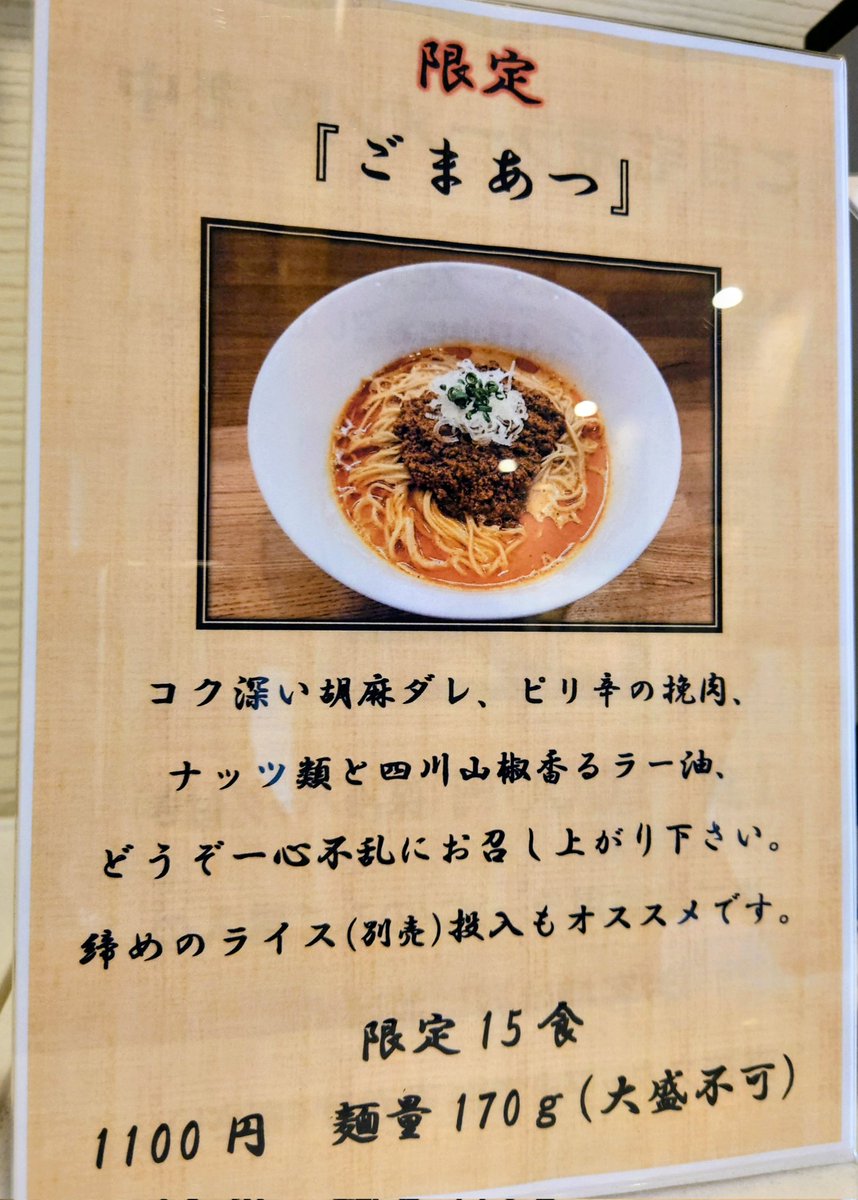 限定
『ごまあつ』
コク深い胡麻ダレ、ピリ辛の挽肉、
ナッツ類と四川山椒香るラー油、
どうぞ一心不乱にお召し上がり下さい。
締めのライス(別売)投入もオススメです。
限定15食
1100円　麺量170g(大盛不可)